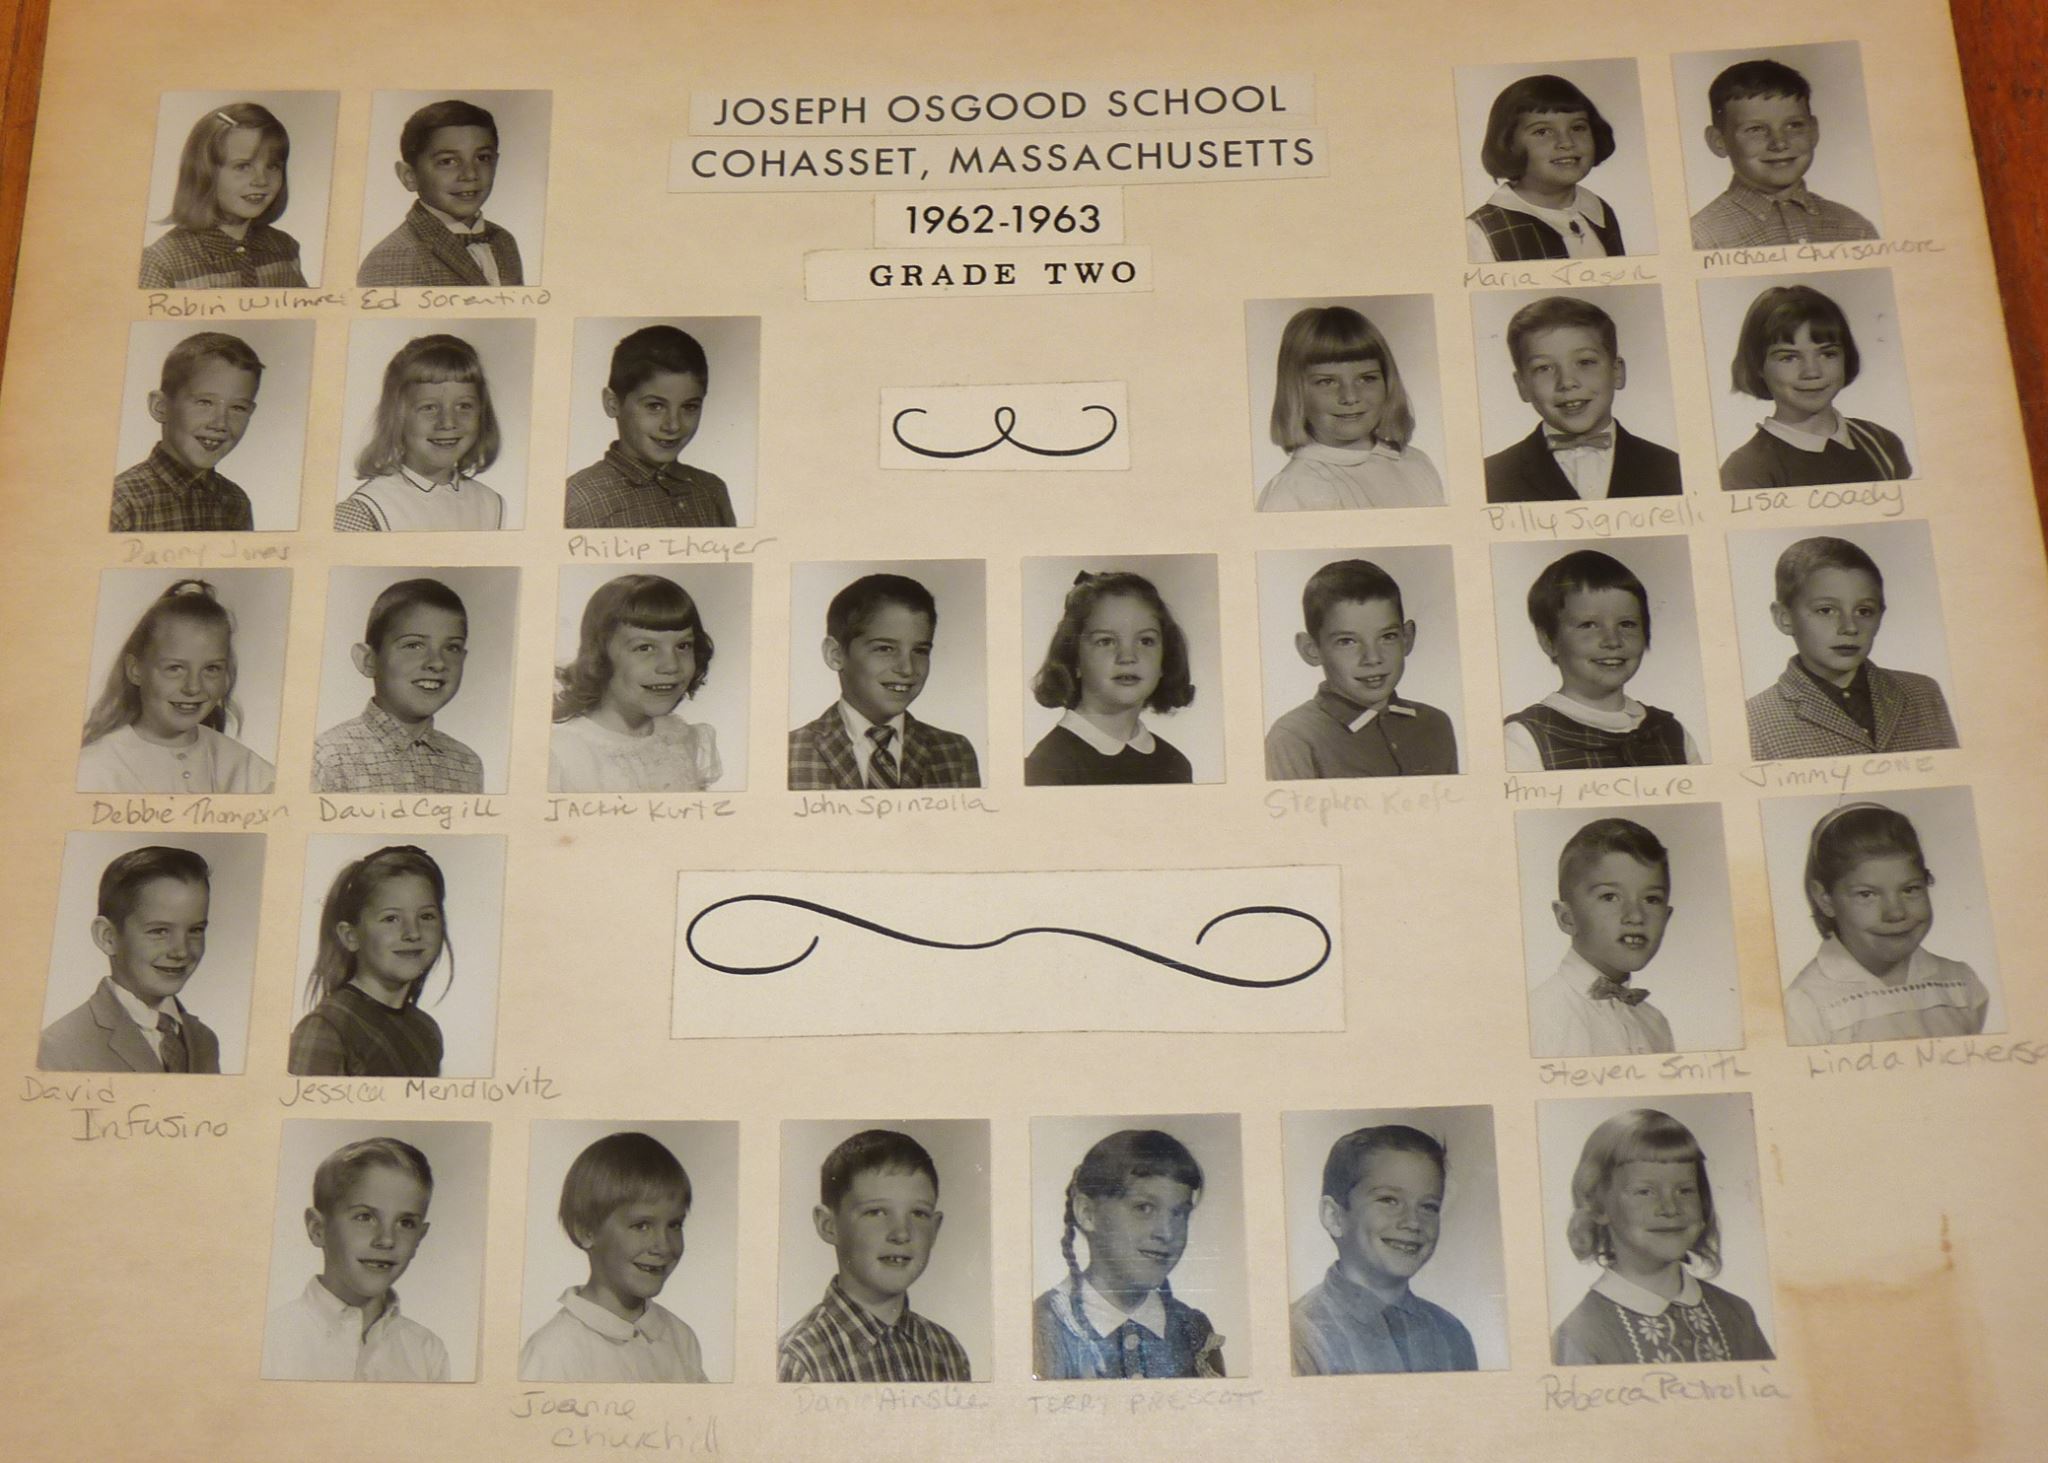 JOSEPH OSGOOD SCHOOL
COHASSET, MASSACHUSETTS
1962-1963
GRADE TWO
Robin Wilmre
Ed Sorentino
Maria
Michael Chrisamore
Danny Jones
Philip Thayer
Billy Signorelli
Lisa Coady
Debbie Thompson
David Cogill
Jackie Kurtz
John Spinzolla
Stephen Keefe
Amy McClure
Jimmy CONE
David
Infusino
Jessica Mendlovitz
Steven Smith
Linda Nickerso
Joanne
Churchill
Ainslie
TERRY PRESCOTT
Rebecca Patrolia